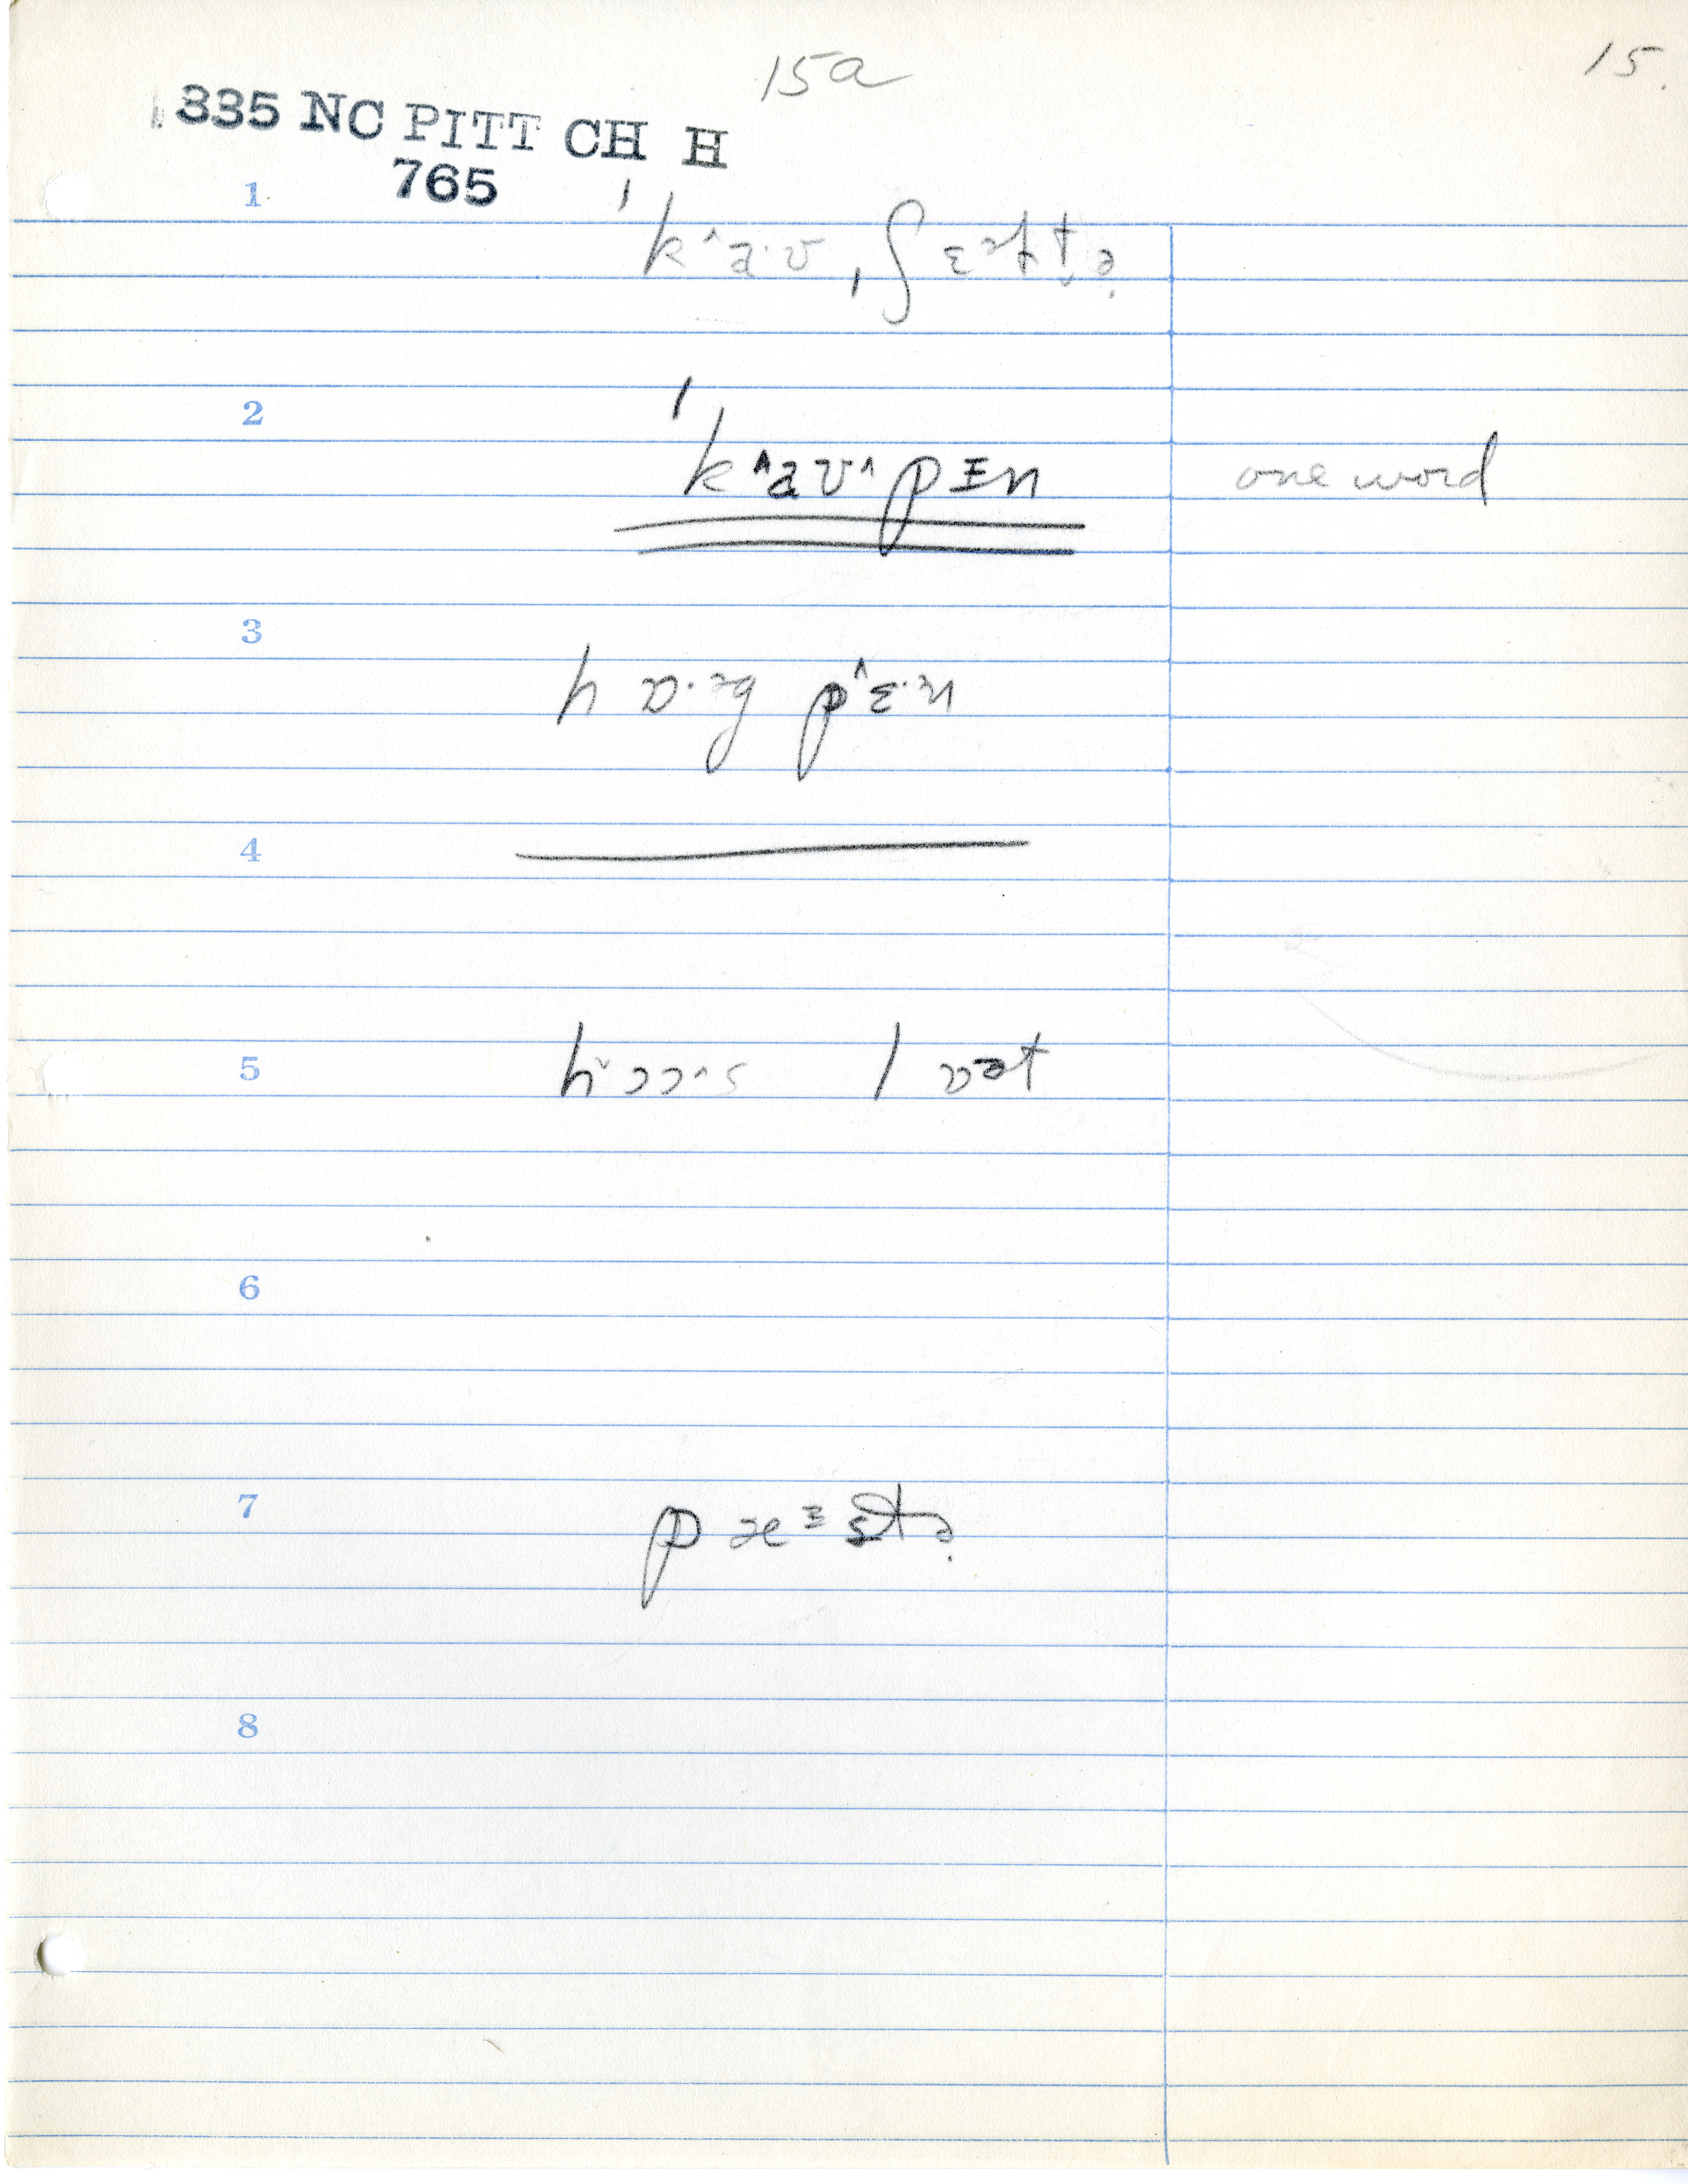 15a
15.
335 NC PITT CH H
765
1
ˈk˄a·ʊ ˌʃɛᵊɫtə
2
ˈk˄aʊ˄pɪn one word
3
hɒ·ᵊg p˄ɛ·ᵊn
4
5
hɔɔ˄s lɒət
6
7
pæᶦstə
8